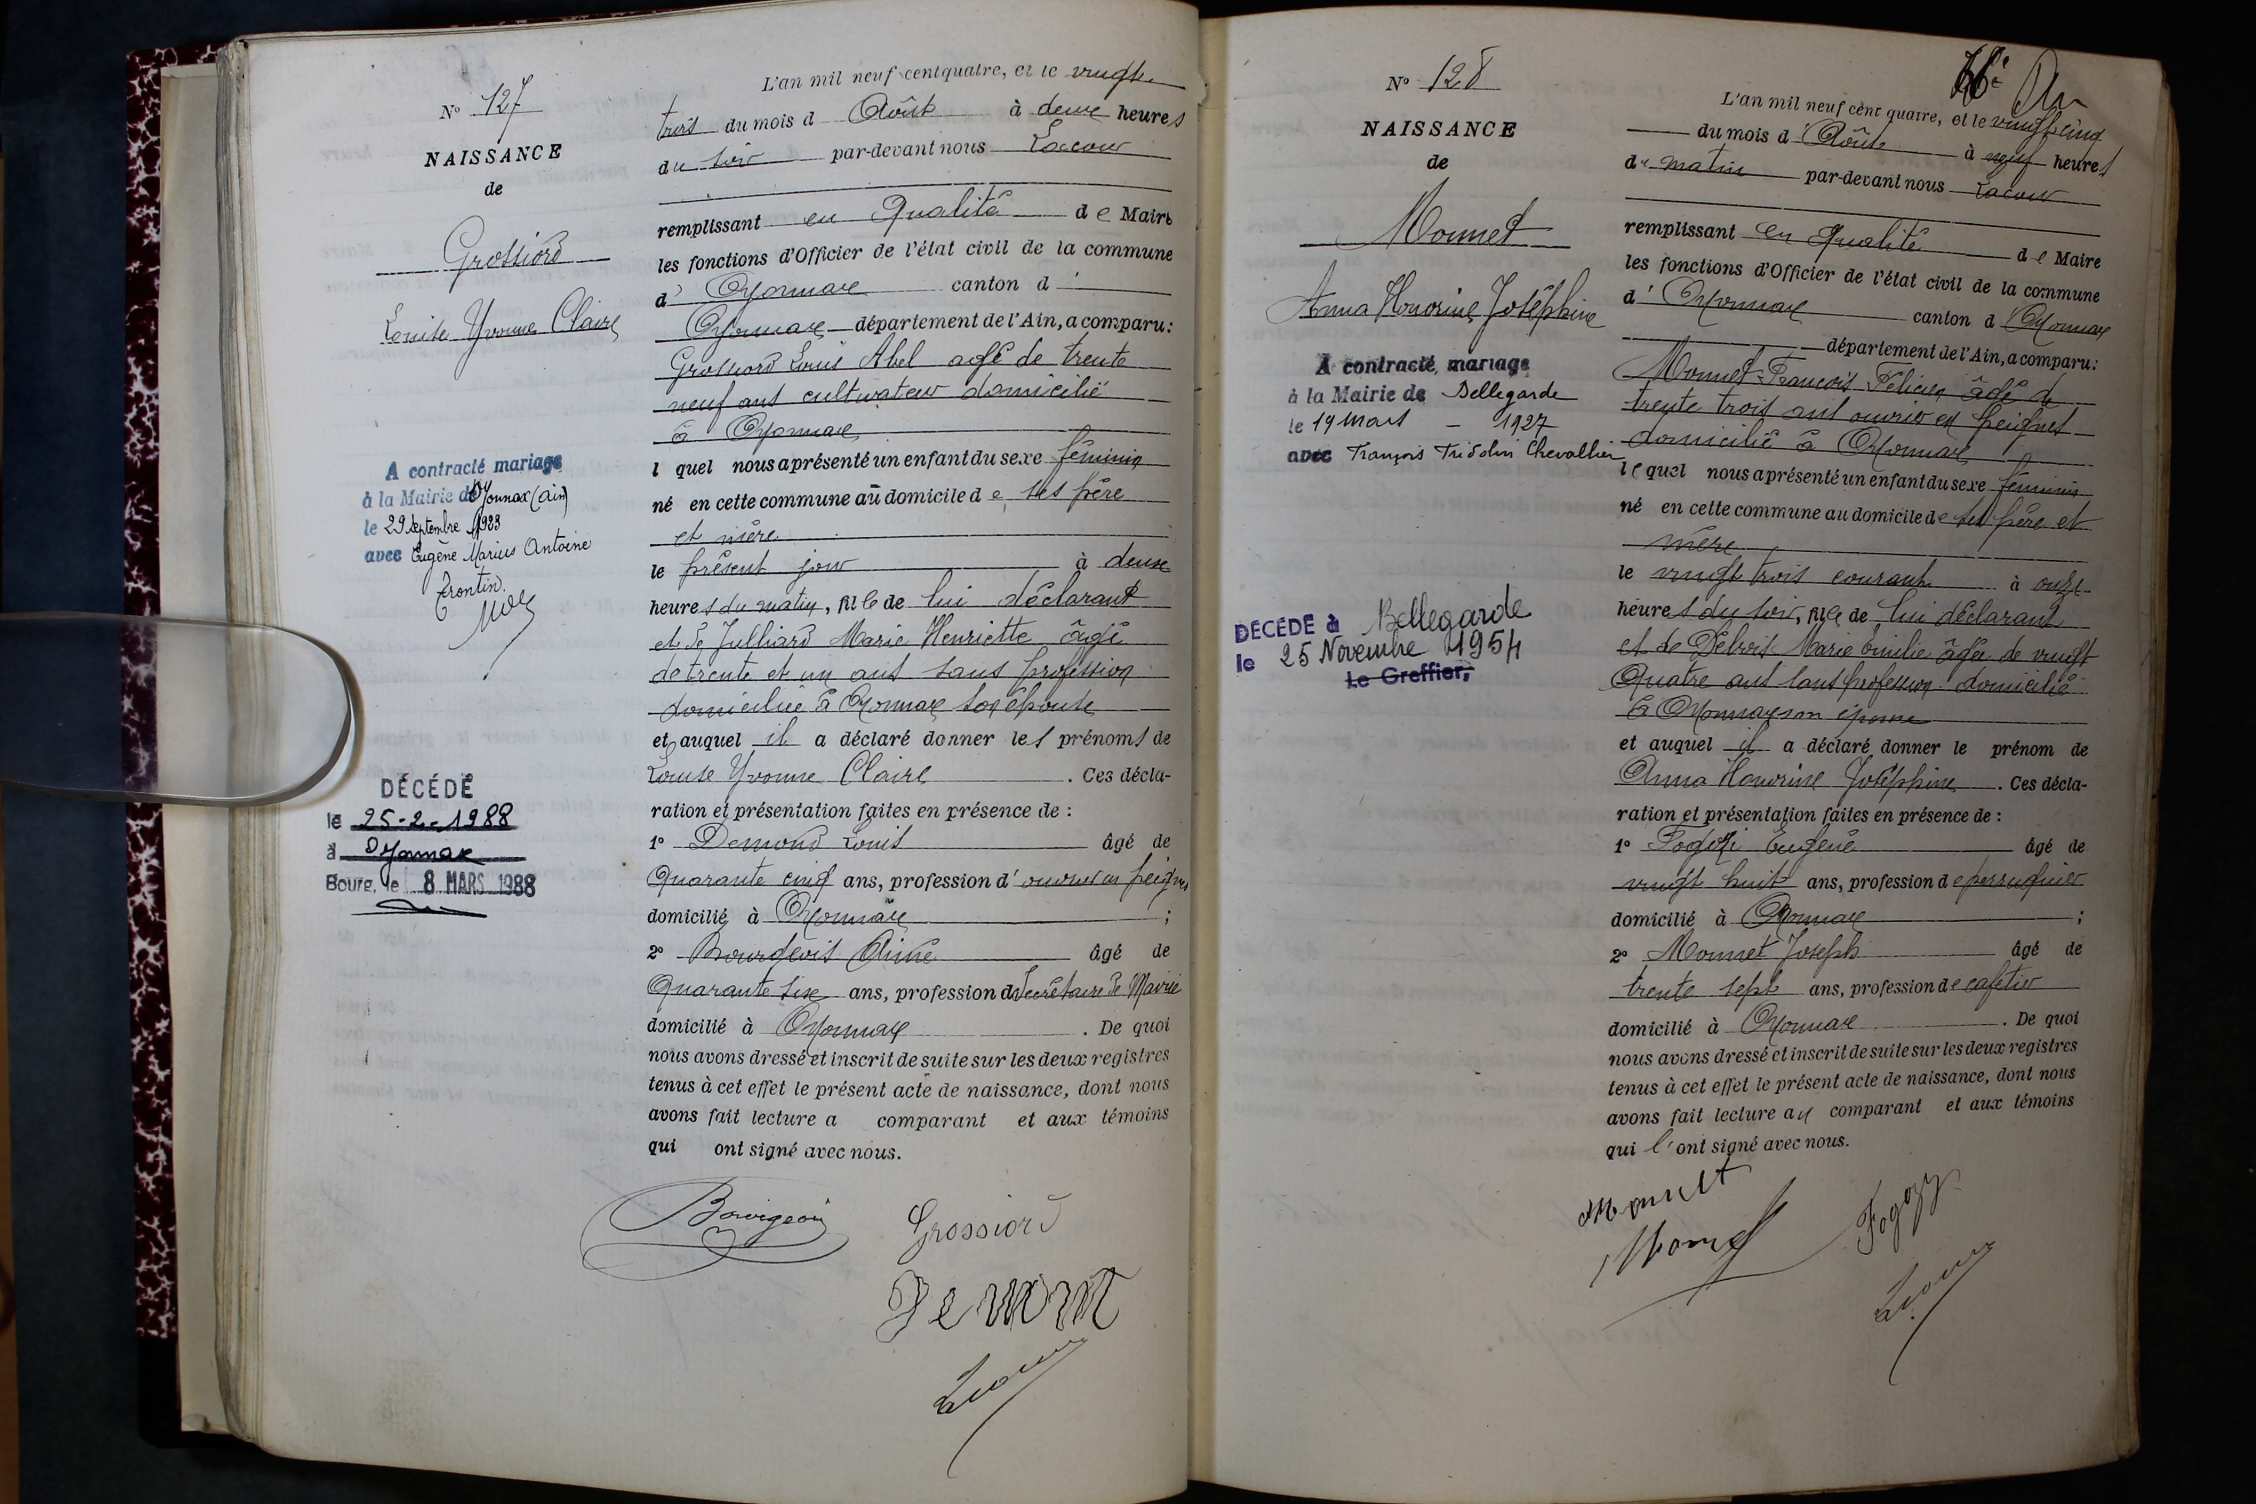 N° 127
NAISSANCE
de
Grossiord
Louise Yvonne Claire
A contracté mariage
à la Mairie de Oyonnax (Ain)
le 29 Septembre 1923
avec Eugène Marius Antoine
DÉCÉDÉ
le 25-2-1988
à Oyonnax
Bourg, le 8 MARS 1988
L'an mil neuf cent quatre, et le vingt
trois du mois d Août à deux heures
du soir par-devant nous Lacour
remplissant en qualité de Maire
les fonctions d'Officier de l'état civil de la commune
d' Oyonnax canton d'
Oyonnax département de l'Ain, a comparu:
Grossiord Louis Abel agé de trente
neuf ans cultivateur domicilié
à Oyonnax
l quel nous a présenté un enfant du sexe féminin
né en cette commune au domicile de ses père
et mère
le présent jour à deux
heures du matin, fille de lui déclarant
et de Julliard Marie Henriette âgée
de trente et un ans sans profession
domiciliée à Oyonnax son épouse
et auquel il a déclaré donner les prénoms de
Louise Yvonne Claire. Ces décla-
ration et présentation faites en présence de :
1° Demond Louis âgé de
Quarante cinq ans, profession d'ouvrier en peignes
domicilié à Oyonnax ;
2° Bourgeois Aimé âgé de
Quarante six ans, profession de Secrétaire de Mairie
domicilié à Oyonnax. De quoi
nous avons dressé et inscrit de suite sur les deux registres
tenus à cet effet le présent acte de naissance, dont nous
avons fait lecture a comparant et aux témoins
qui ont signé avec nous.
Bourgeois Grossiord
Lacour
N° 128
NAISSANCE
de
Monnet
Anna Honorine Joséphine
A contracté mariage
à la Mairie de Bellegarde
le 19 Mars - 1927
avec François Fridolin Chevallier
DÉCÉDÉ à Bellegarde
le 25 Novembre 1954
Le Greffier,
L'an mil neuf cent quatre, et le vingt cinq
du mois d'Août à neuf heures
du matin par-devant nous Lacour
remplissant en qualité de Maire
les fonctions d'Officier de l'état civil de la commune
d' Oyonnax canton d'Oyonnax
département de l'Ain, a comparu:
Monnet François Félicien âgé de
trente trois ans ouvrier en peignes
domicilié à Oyonnax
lequel nous a présenté un enfant du sexe féminin
né en cette commune au domicile de ses père et
mère
le vingt trois courant à onze
heures du soir, fille de lui déclarant
et de Marie Emilie âgée de vingt
Quatre ans sans profession domiciliée
à Oyonnax son épouse
et auquel il a déclaré donner le prénom de
Anna Honorine Joséphine. Ces décla-
ration et présentation faites en présence de :
1° Fogozi Eugène âgé de
vingt huit ans, profession de perruquier
domicilié à Oyonnax ;
2° Monnet Joseph âgé de
trente sept ans, profession de cafetier
domicilié à Oyonnax. De quoi
nous avons dressé et inscrit de suite sur les deux registres
tenus à cet effet le présent acte de naissance, dont nous
avons fait lecture au comparant et aux témoins
qui l'ont signé avec nous.
Monnet
Monnet Fogozy
Lacour